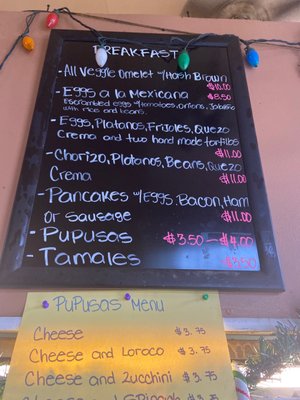 BREAKFAST
- All Veggie Omelet w/Hash Brown
$10.00
- Eggs a la Mexicana $8.50
(scrambled eggs w/tomatoes, onions, Jalapeño
with rice and beans.
- Eggs, Platanos, Frijoles, Quezo
Crema and two hand made tortillas
$11.00
- Chorizo, Platonos, Beans, Quezo
Crema $11.00
- Pancakes w/Eggs, Bacon, Ham
or Sausage $11.00
- Pupusas $3.50 - $4.00
- Tamales
PuPusas Menu
Cheese $3.75
Cheese and Loroco $3.75
Cheese and Zucchini $3.75
Cheese and Spinach $3.75